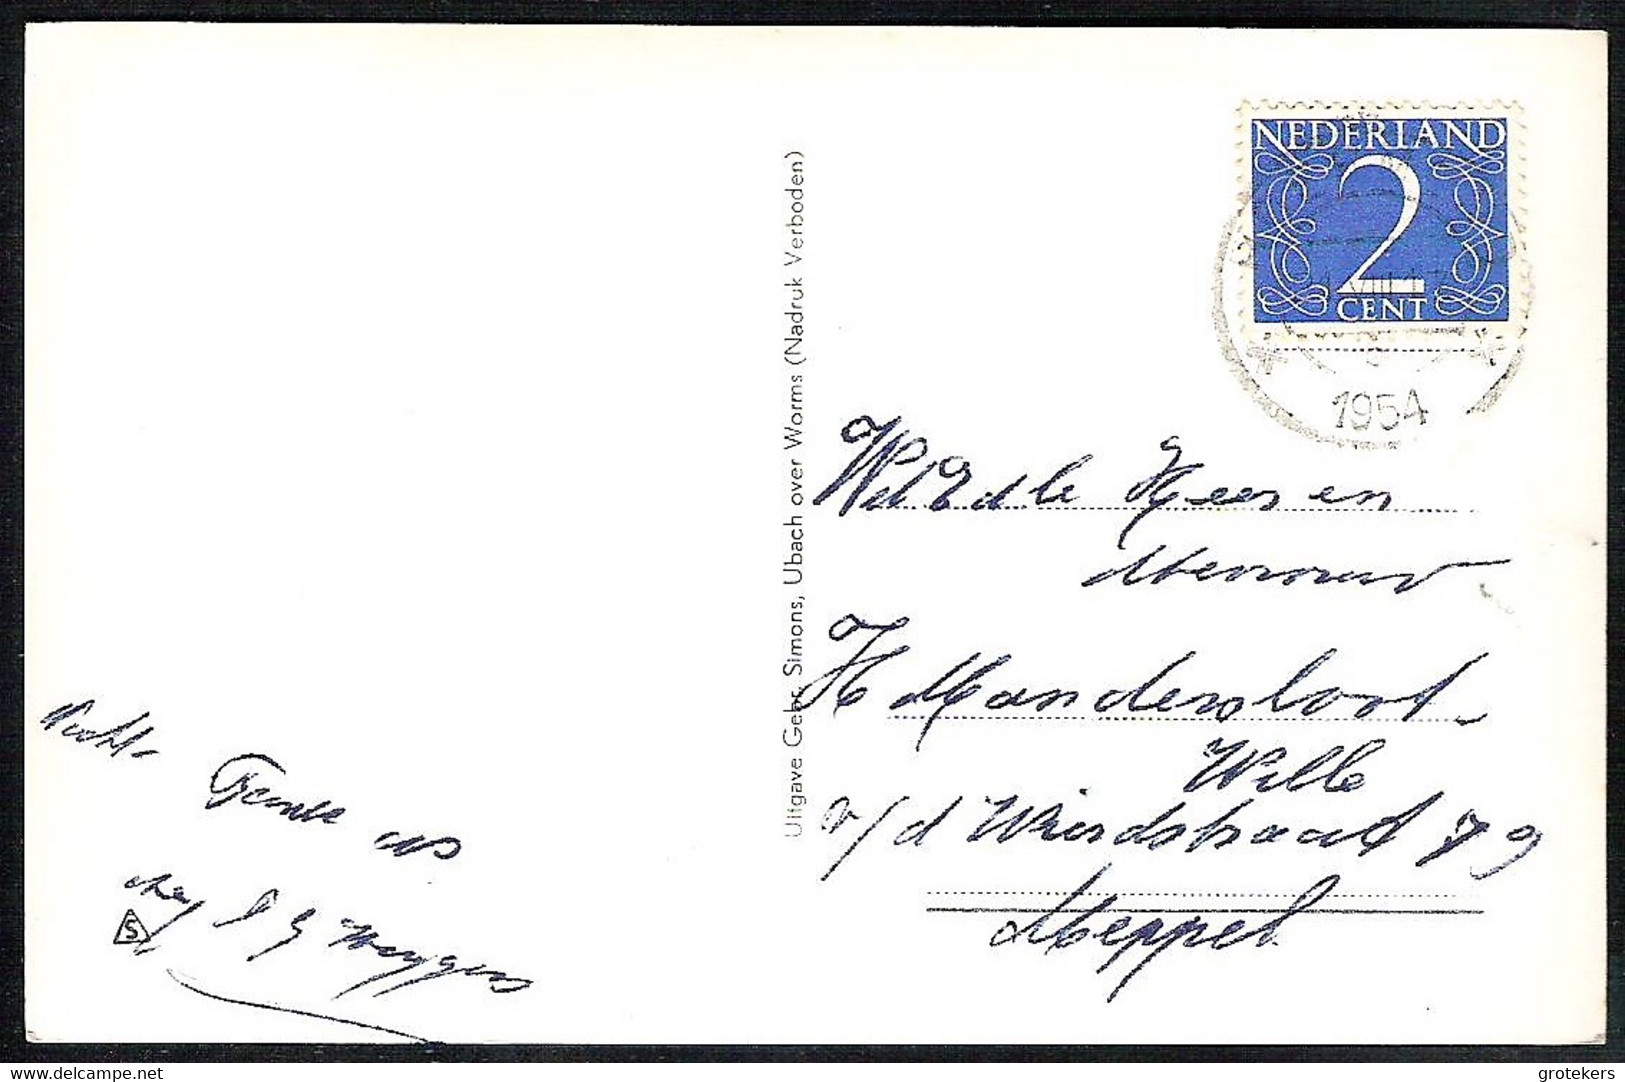 NEDERLAND
2
CENT
1954
Uitgave Gebr. Simons, Ubach over Worms (Nadruk Verboden)
WelEdle Heer en
Mevrouw
H Mandersloot-
Wille
v/d Wierdstraat 79
Meppel
Fam
Mej
S
delcampe.net
grotekers